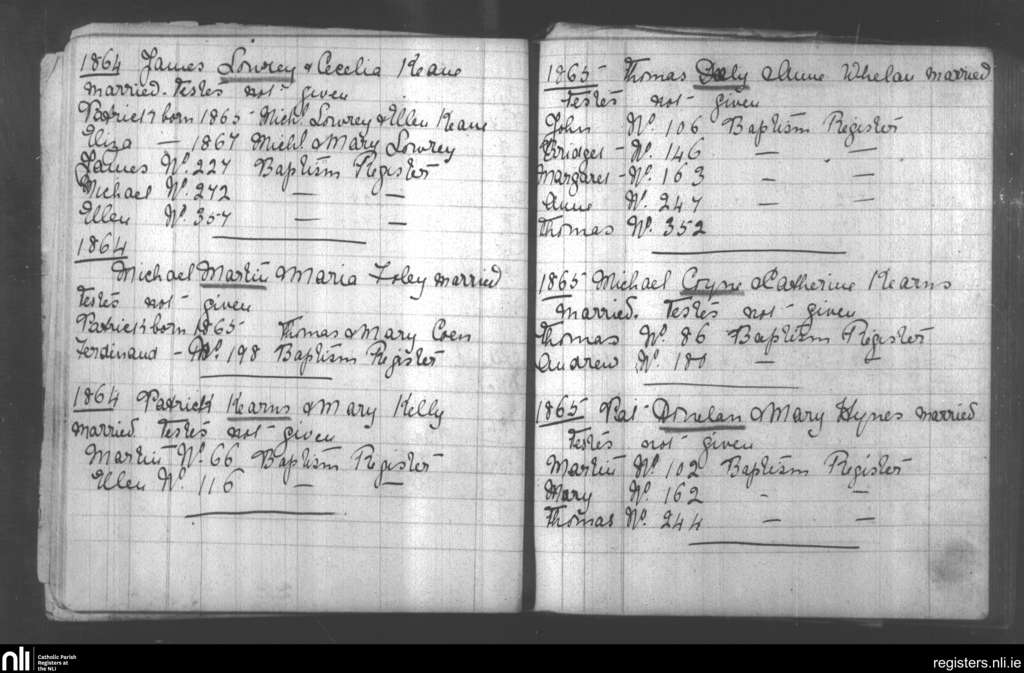 1864 James Lowrey & Cecelia Keane
married. Testes not given
Patrick born 1865 Michl Lowrey & Ellen Keane
Eliza — 1867 Michl & Mary Lowrey
James No. 227 Baptism Register
Michael No. 272 — —
Ellen No. 357 — —
1864
Michael Martin & Maria Foley married
Testes not given
Patrick born 1865 Thomas & Mary Coen
Ferdinand - No. 198 Baptism Register
1864 Patrick Kearns & Mary Kelly
married. Testes not given
Martin No. 66 Baptism Register
Ellen No. 116 — —
1865 Thomas Daly & Anne Whelan married
Testes not given
John No. 106 Baptism Register
Bridget - No. 146 — —
Margaret - No. 163 — —
Anne No. 247 — —
Thomas No. 352
1865 Michael Coyne & Catherine Kearns
married. Testes not given
Thomas No. 86 Baptism Register
Andrew No. 180 — —
1865 Pat Donelan & Mary Hynes married
Testes not given
Martin No. 102 Baptism Register
Mary No. 162 - —
Thomas No. 244 — —
nli
Catholic Parish
Registers at
the NLI
registers.nli.ie